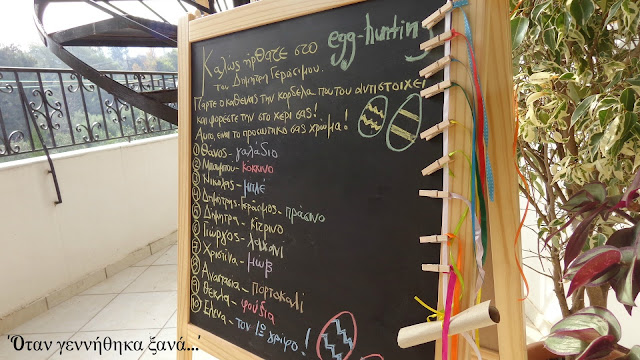 Καλώς ήρθατε στο egg-hunting
του Δημήτρη Γεράσιμου.
Πάρτε ο καθένας την κορδέλα που του αντιστοιχεί
και φορέστε την στο χέρι σας!
Αυτό είναι το προσωπικό σας χρώμα!
① Θάνος - γαλάζιο
② - κόκκινο
③ Νικόλας - μπλέ
④ Δημήτρης-Γεράσιμος - πράσινο
⑤ Δήμητρα - κίτρινο
⑥ Γιώργος - λαχανί
⑦ Χριστίνα - μωβ
⑧ Αναστασία - πορτοκαλί
⑨ Θέκλα - φούξια
⑩ Έλενα - τον 1ο γρίφο!
'Όταν γεννήθηκα ξανά...'